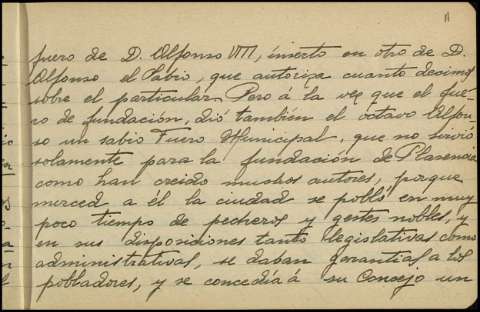 11
fuero de D. Alfonso VIII, inserto en otro de D.
Alfonso el Sabio, que autoriza cuanto decimos
sobre el particular. Pero á la vez que el fue-
ro de fundación, dió tambien el octavo Alfon-
so un sabio Fuero Municipal, que no sirvió
solamente para la fundación de Plasencia
como han creido muchos autores, porque
merced a él la ciudad se pobló en muy
poco tiempo de pecheros y gentes nobles, y
en sus disposiciones tanto legislativas como
administrativas, se daban garantias a los
pobladores, y se concedía á su Concejo un